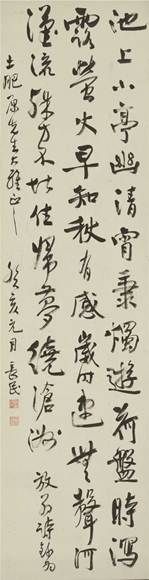 池上小亭幽清宵秉燭遊荷盤時瀉
露螢火早知秋有感歲時速無聲河
漢流殊方不堪住歸夢繞滄洲 放翁詩錄為
土肥原先生大雅正之 癸亥元月 長民